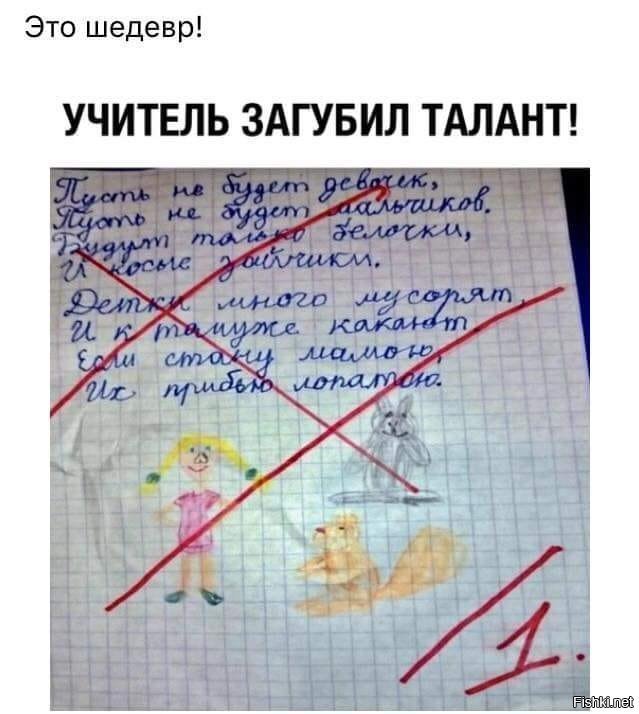 Это шедевр!
УЧИТЕЛЬ ЗАГУБИЛ ТАЛАНТ!
Пусть не будет девочек,
Пусть не будет мальчиков.
Будут только белочки,
И косые зайчики.
Детки много мусорят
И к тамуже какают
Если стану мамою,
Их прибью лопатою.
1.
Fishki.net